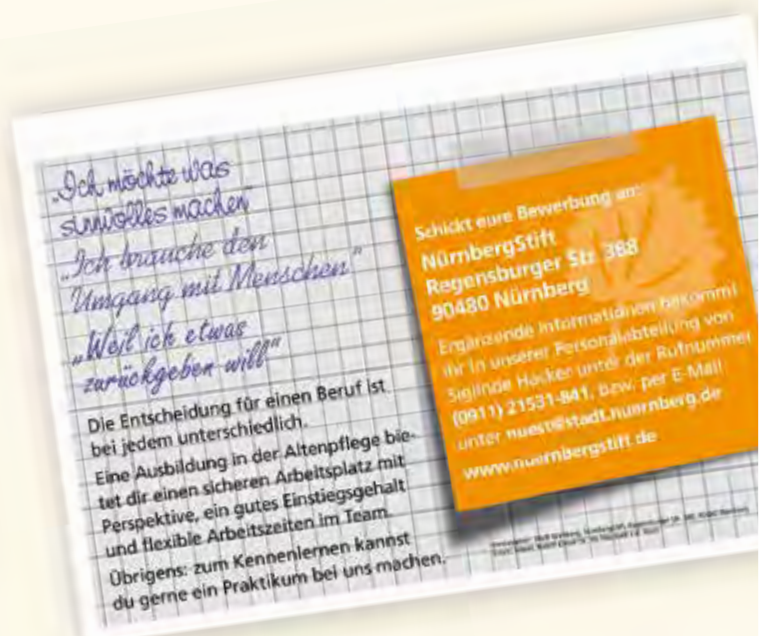 „Ich möchte was
sinnvolles machen“
„Ich brauche den
Umgang mit Menschen“
„Weil ich etwas
zurückgeben will“
Die Entscheidung für einen Beruf ist
bei jedem unterschiedlich.
Eine Ausbildung in der Altenpflege bie-
tet dir einen sicheren Arbeitsplatz mit
Perspektive, ein gutes Einstiegsgehalt
und flexible Arbeitszeiten im Team.
Übrigens: zum Kennenlernen kannst
du gerne ein Praktikum bei uns machen.
Schickt eure Bewerbung an:
NürnbergStift
Regensburger Str. 388
90480 Nürnberg
Ergänzende Informationen bekommt
ihr in unserer Personalabteilung von
Siglinde Hacker unter der Rufnummer
(0911) 21531-841, bzw. per E-Mail
unter nuest@stadt.nuernberg.de
www.nuernbergstift.de